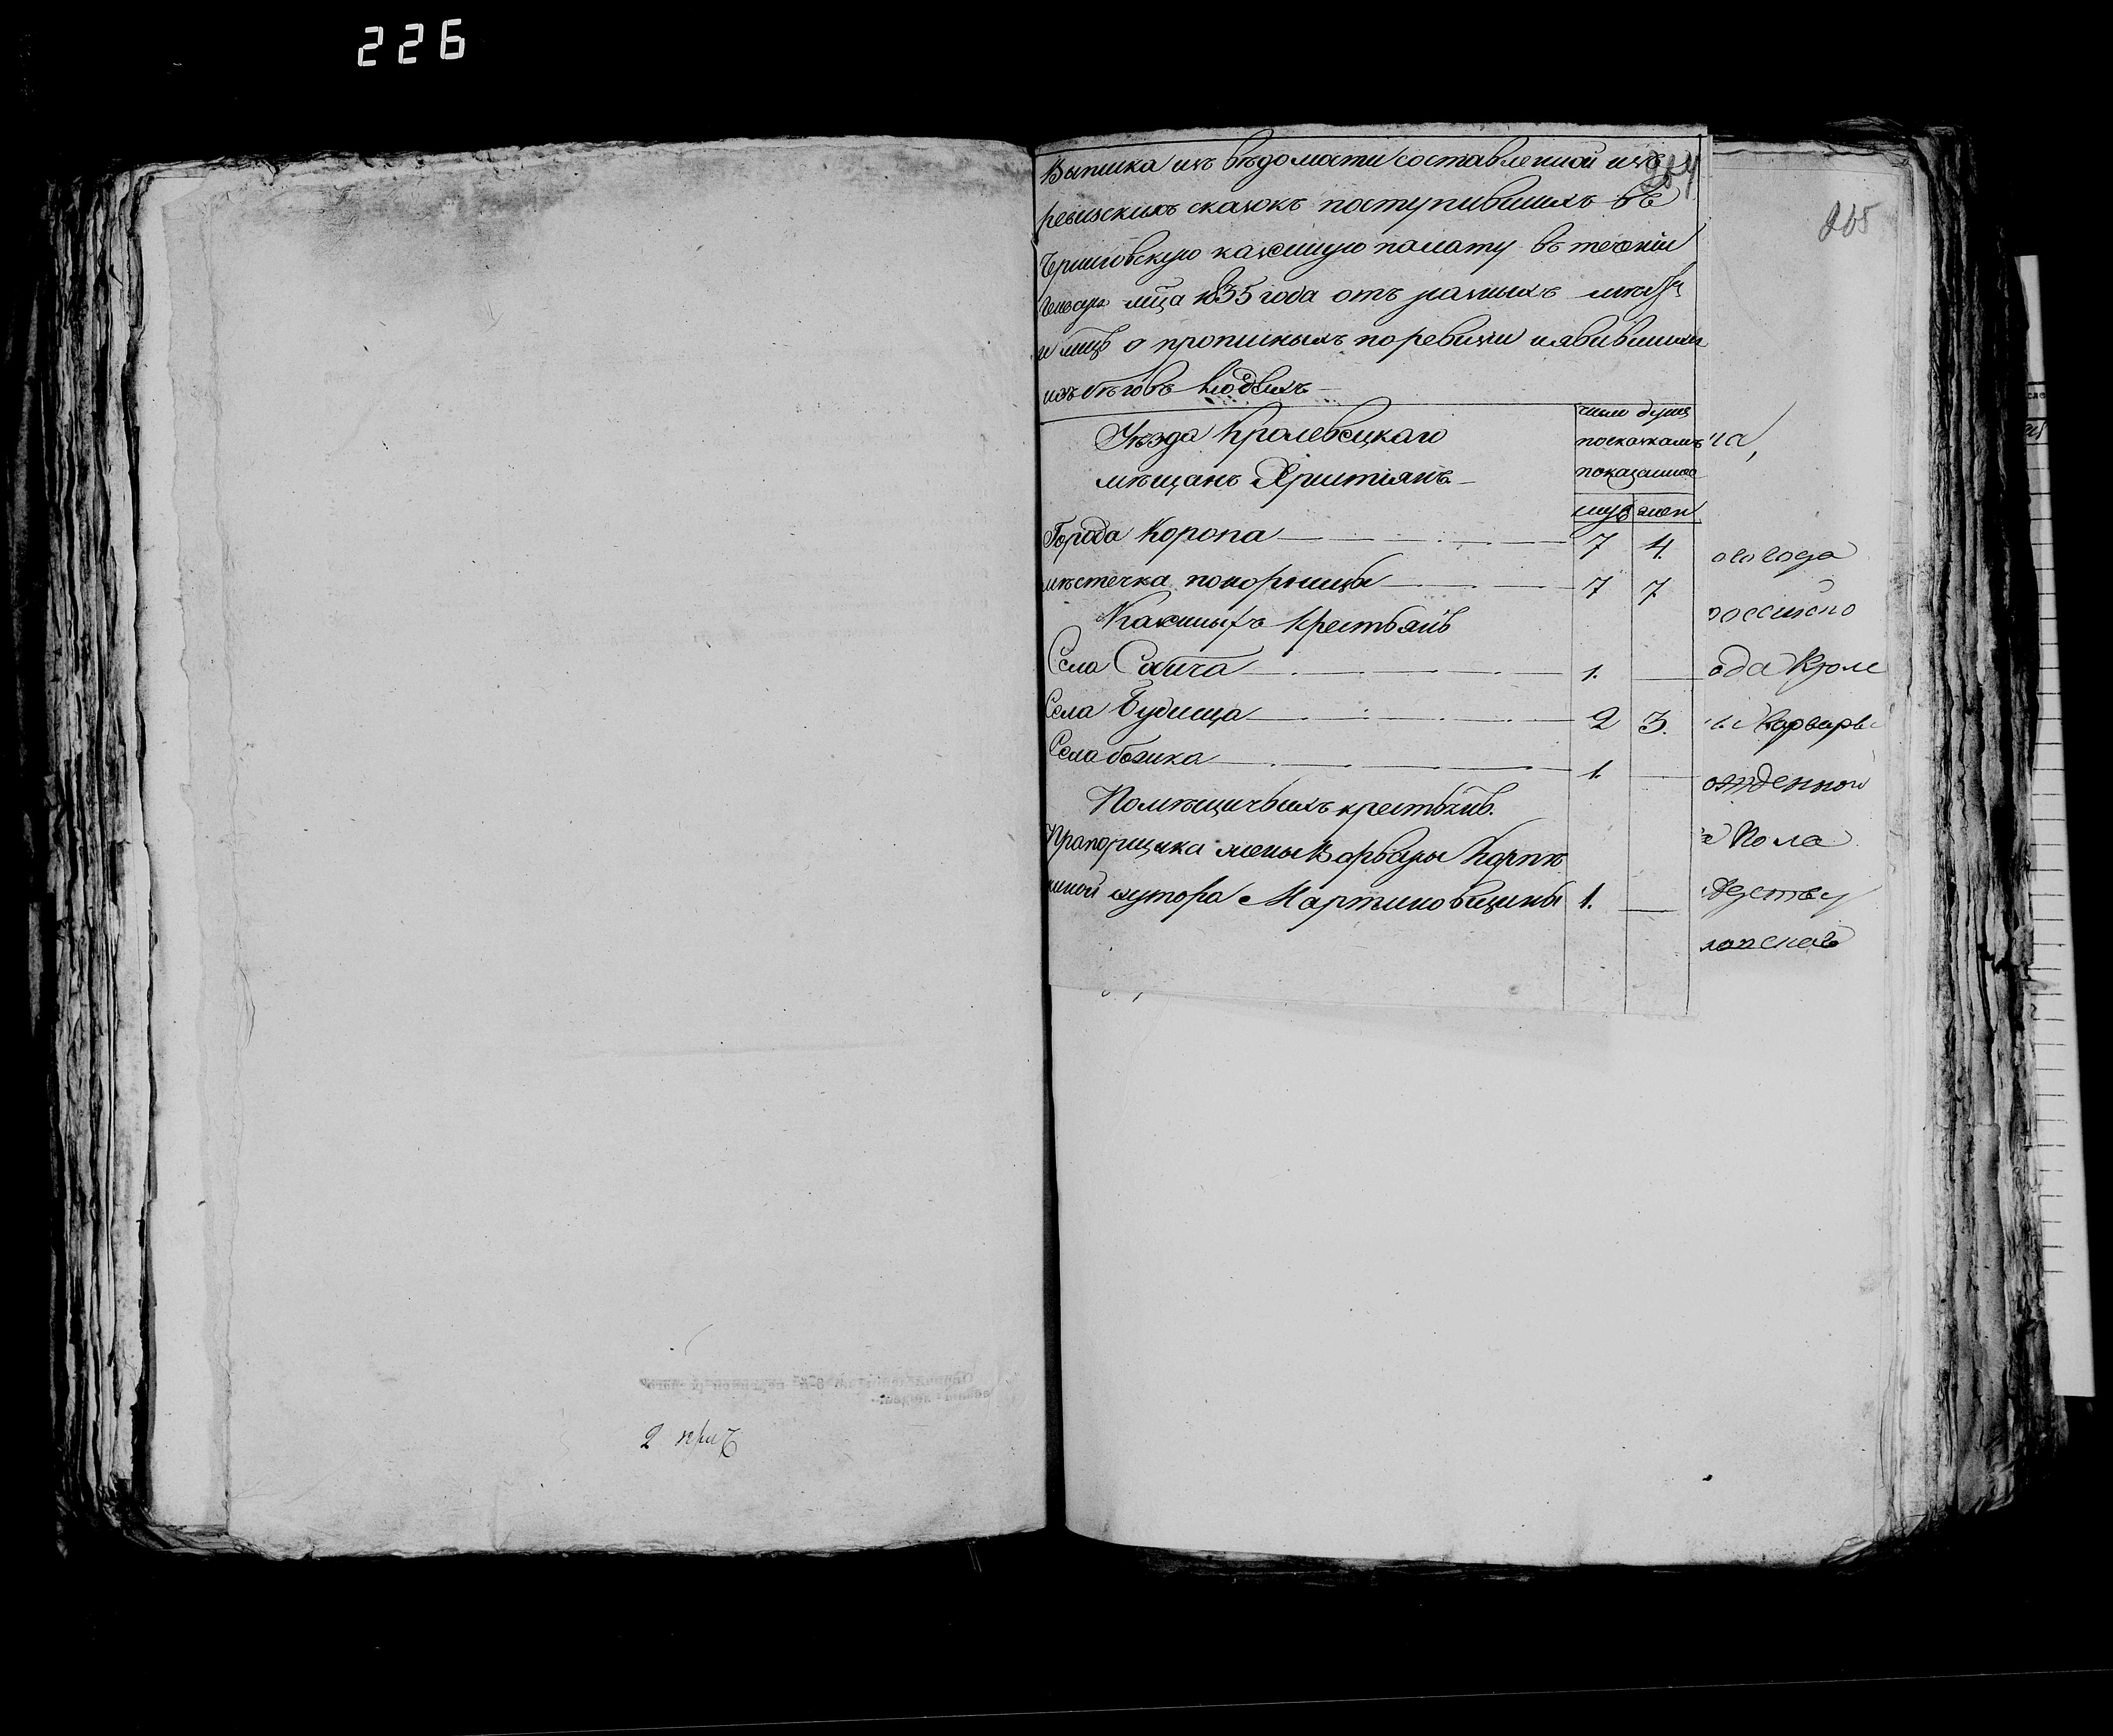 226
2
264
Выписка изъ вѣдомости составленной изъ
ревизскихъ сказокъ поступившихъ въ
Черниговскую казенную палату въ теченіи
Генваря мца 1835 года отъ разныхъ мѣстъ
и лицъ о прописныхъ по ревизіи и явившихся
изъ бѣговъ людяхъ
265
число душъ
по сказкамъ
показанное
муж жен
Уѣзда Кролевецкаго
мѣщанъ Христіянъ
Города Коропа 7 4.
мѣстечка понорницы 7 7
Казенныхъ Крестьянъ
Села Собича 1.
Села Будища 2 3.
Села 1.
Помѣщичьихъ крестьянъ.
Прапорщика жены Варвары
хутора Мартиновщины 1.
ого года
россійско
ода Кроле
Варвары
ожденной
Пола